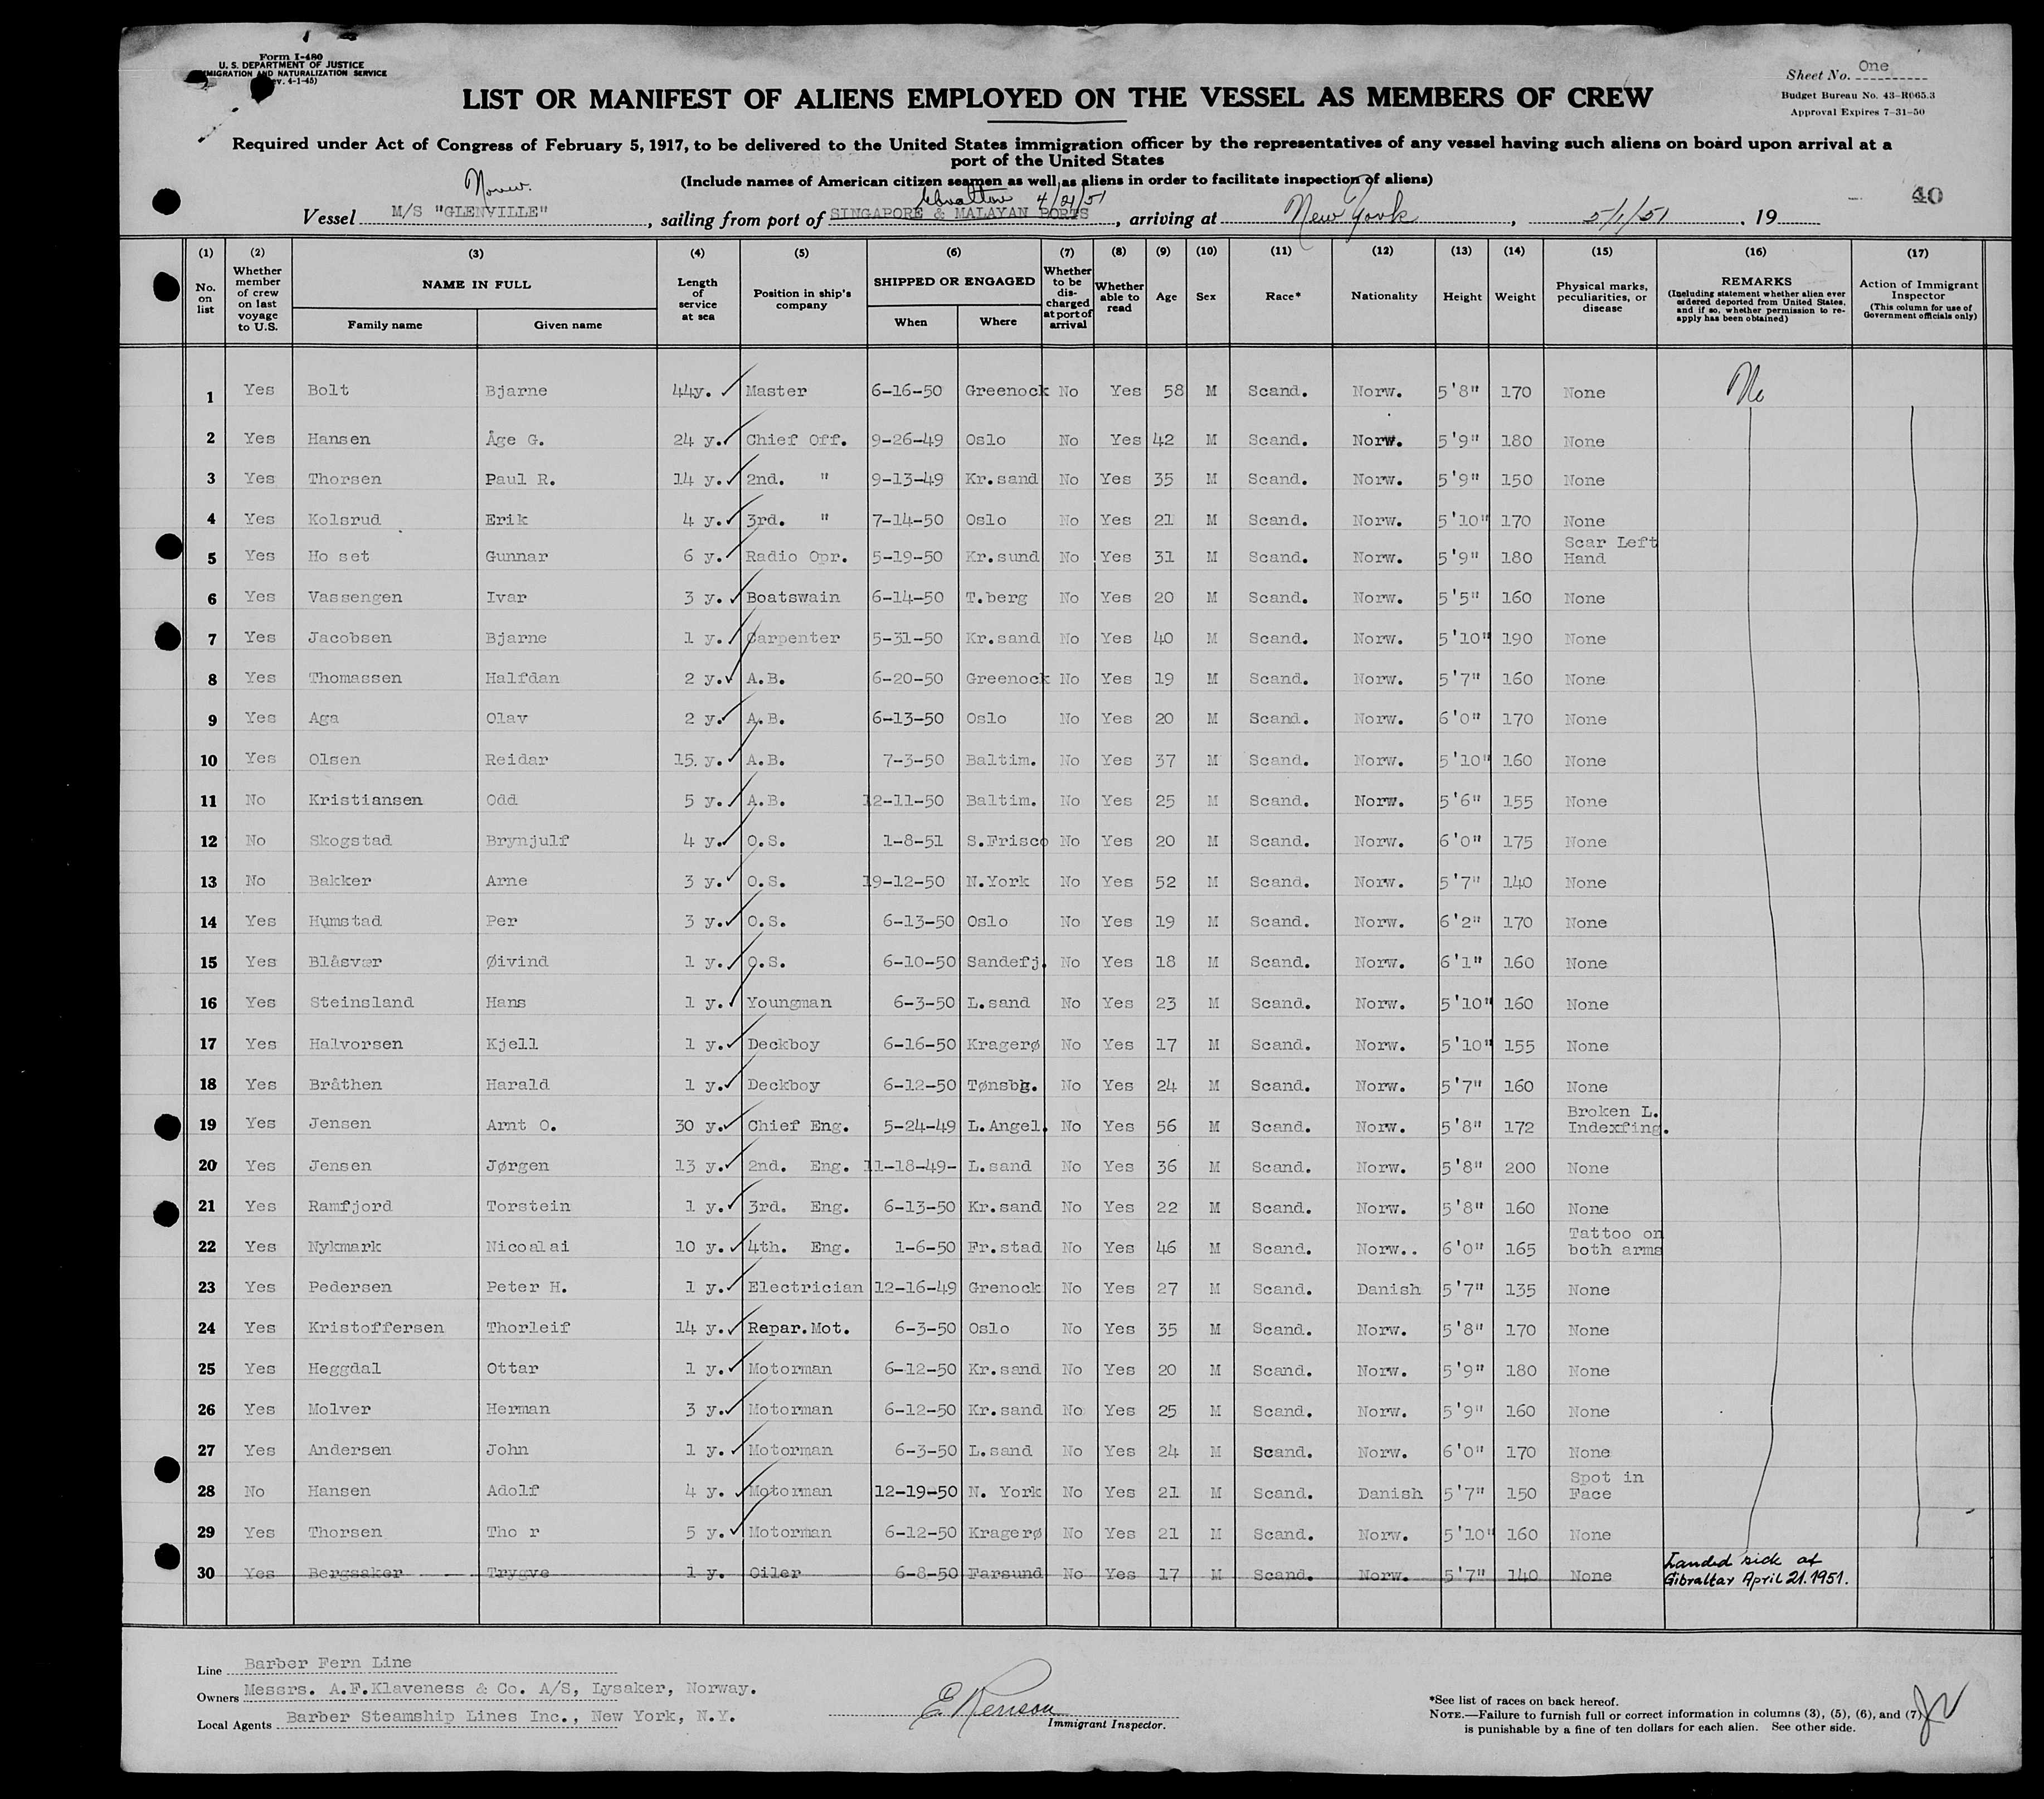 Form I-480
U. S. DEPARTMENT OF JUSTICE
IMMIGRATION AND NATURALIZATION SERVICE
(Rev. 4-1-45)
Sheet No. One
Budget Bureau No. 43-R065.3
Approval Expires 7-31-50
LIST OR MANIFEST OF ALIENS EMPLOYED ON THE VESSEL AS MEMBERS OF CREW
Required under Act of Congress of February 5, 1917, to be delivered to the United States immigration officer by the representatives of any vessel having such aliens on board upon arrival at a
port of the United States
(Include names of American citizen seamen as well as aliens in order to facilitate inspection of aliens)
40
4/21/51
Vessel M/S "GLENVILLE", sailing from port of SINGAPORE & MALAYAN PORTS, arriving at New York, 5/1/51, 19
(1) No. on list (2) Whether member of crew on last voyage to U.S. (3) NAME IN FULL Family name Given name (4) Length of service at sea (5) Position in ship's company (6) SHIPPED OR ENGAGED When Where (7) Whether to be discharged at port of arrival (8) Whether able to read (9) Age (10) Sex (11) Race* (12) Nationality (13) Height (14) Weight (15) Physical marks, peculiarities, or disease (16) REMARKS (Including statement whether alien ever ordered deported from United States, and if so, whether permission to reapply has been obtained) (17) Action of Immigrant Inspector (This column for use of Government officials only)
1 Yes Bolt Bjarne 44y. Master 6-16-50 Greenock No Yes 58 M Scand. Norw. 5'8" 170 None No
2 Yes Hansen Åge G. 24 y. Chief Off. 9-26-49 Oslo No Yes 42 M Scand. Norw. 5'9" 180 None
3 Yes Thorsen Paul R. 14 y. 2nd. " 9-13-49 Kr.sand No Yes 35 M Scand. Norw. 5'9" 150 None
4 Yes Kolsrud Erik 4 y. 3rd. " 7-14-50 Oslo No Yes 21 M Scand. Norw. 5'10" 170 None
5 Yes Ho set Gunnar 6 y. Radio Opr. 5-19-50 Kr.sund No Yes 31 M Scand. Norw. 5'9" 180 Scar Left Hand
6 Yes Vassengen Ivar 3 y. Boatswain 6-14-50 T.berg No Yes 20 M Scand. Norw. 5'5" 160 None
7 Yes Jacobsen Bjarne 1 y. Carpenter 5-31-50 Kr.sand No Yes 40 M Scand. Norw. 5'10" 190 None
8 Yes Thomassen Halfdan 2 y. A.B. 6-20-50 Greenock No Yes 19 M Scand. Norw. 5'7" 160 None
9 Yes Aga Olav 2 y. A.B. 6-13-50 Oslo No Yes 20 M Scand. Norw. 6'0" 170 None
10 Yes Olsen Reidar 15. y. A.B. 7-3-50 Baltim. No Yes 37 M Scand. Norw. 5'10" 160 None
11 No Kristiansen Odd 5 y. A.B. 12-11-50 Baltim. No Yes 25 M Scand. Norw. 5'6" 155 None
12 No Skogstad Brynjulf 4 y. O.S. 1-8-51 S.Frisco No Yes 20 M Scand. Norw. 6'0" 175 None
13 No Bakker Arne 3 y. O.S. 19-12-50 N.York No Yes 52 M Scand. Norw. 5'7" 140 None
14 Yes Humstad Per 3 y. O.S. 6-13-50 Oslo No Yes 19 M Scand. Norw. 6'2" 170 None
15 Yes Blåsvær Øivind 1 y. O.S. 6-10-50 Sandefj. No Yes 18 M Scand. Norw. 6'1" 160 None
16 Yes Steinsland Hans 1 y. Youngman 6-3-50 L.sand No Yes 23 M Scand. Norw. 5'10" 160 None
17 Yes Halvorsen Kjell 1 y. Deckboy 6-16-50 Kragerø No Yes 17 M Scand. Norw. 5'10" 155 None
18 Yes Bråthen Harald 1 y. Deckboy 6-12-50 Tønsbg. No Yes 24 M Scand. Norw. 5'7" 160 None
19 Yes Jensen Arnt O. 30 y. Chief Eng. 5-24-49 L.Angel. No Yes 56 M Scand. Norw. 5'8" 172 Broken L. Indexfing.
20 Yes Jensen Jørgen 13 y. 2nd. Eng. 11-18-49- L.sand No Yes 36 M Scand. Norw. 5'8" 200 None
21 Yes Ramfjord Torstein 1 y. 3rd. Eng. 6-13-50 Kr.sand No Yes 22 M Scand. Norw. 5'8" 160 None
22 Yes Nykmark Nicoalai 10 y. 4th. Eng. 1-6-50 Fr.stad No Yes 46 M Scand. Norw.. 6'0" 165 Tattoo on both arms
23 Yes Pedersen Peter H. 1 y. Electrician 12-16-49 Grenock No Yes 27 M Scand. Danish 5'7" 135 None
24 Yes Kristoffersen Thorleif 14 y. Repar.Mot. 6-3-50 Oslo No Yes 35 M Scand. Norw. 5'8" 170 None
25 Yes Heggdal Ottar 1 y. Motorman 6-12-50 Kr.sand No Yes 20 M Scand. Norw. 5'9" 180 None
26 Yes Molver Herman 3 y. Motorman 6-12-50 Kr.sand No Yes 25 M Scand. Norw. 5'9" 160 None
27 Yes Andersen John 1 y. Motorman 6-3-50 L.sand No Yes 24 M Scand. Norw. 6'0" 170 None
28 No Hansen Adolf 4 y. Motorman 12-19-50 N. York No Yes 21 M Scand. Danish 5'7" 150 Spot in Face
29 Yes Thorsen Tho r 5 y. Motorman 6-12-50 Kragerø No Yes 21 M Scand. Norw. 5'10" 160 None
30 Yes Bergsaker Trygve 1 y. Oiler 6-8-50 Farsund No Yes 17 M Scand. Norw. 5'7" 140 None Landed sick at Gibraltar April 21. 1951.
Line Barber Fern Line
Owners Messrs. A.F.Klaveness & Co. A/S, Lysaker, Norway.
Local Agents Barber Steamship Lines Inc., New York, N.Y.
Immigrant Inspector.
*See list of races on back hereof.
NOTE.—Failure to furnish full or correct information in columns (3), (5), (6), and (7)
is punishable by a fine of ten dollars for each alien. See other side.